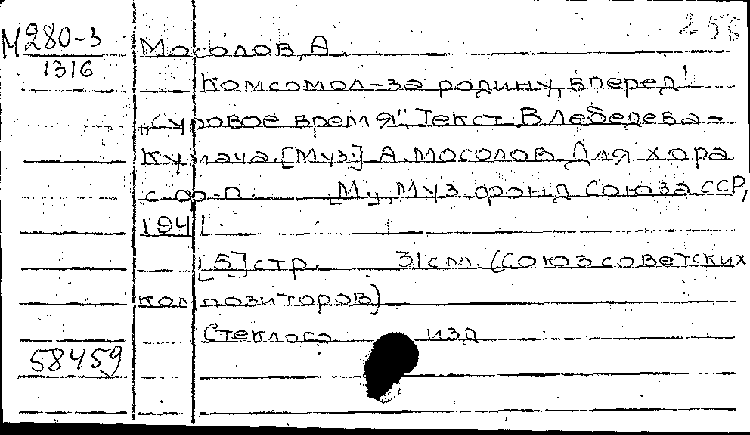 256
М280-3
1316
Мосолов, А.
Комсомол-за родину, вперед!
„Суровое время". Текст В.Лебедева-
Кумача. [Муз.] А.Мосолов. Для хора
с ф-п. М., Муз.фонд Союза ССР,
1941
[5] стр. 31см. (Союз советских
композиторов)
изд
58459